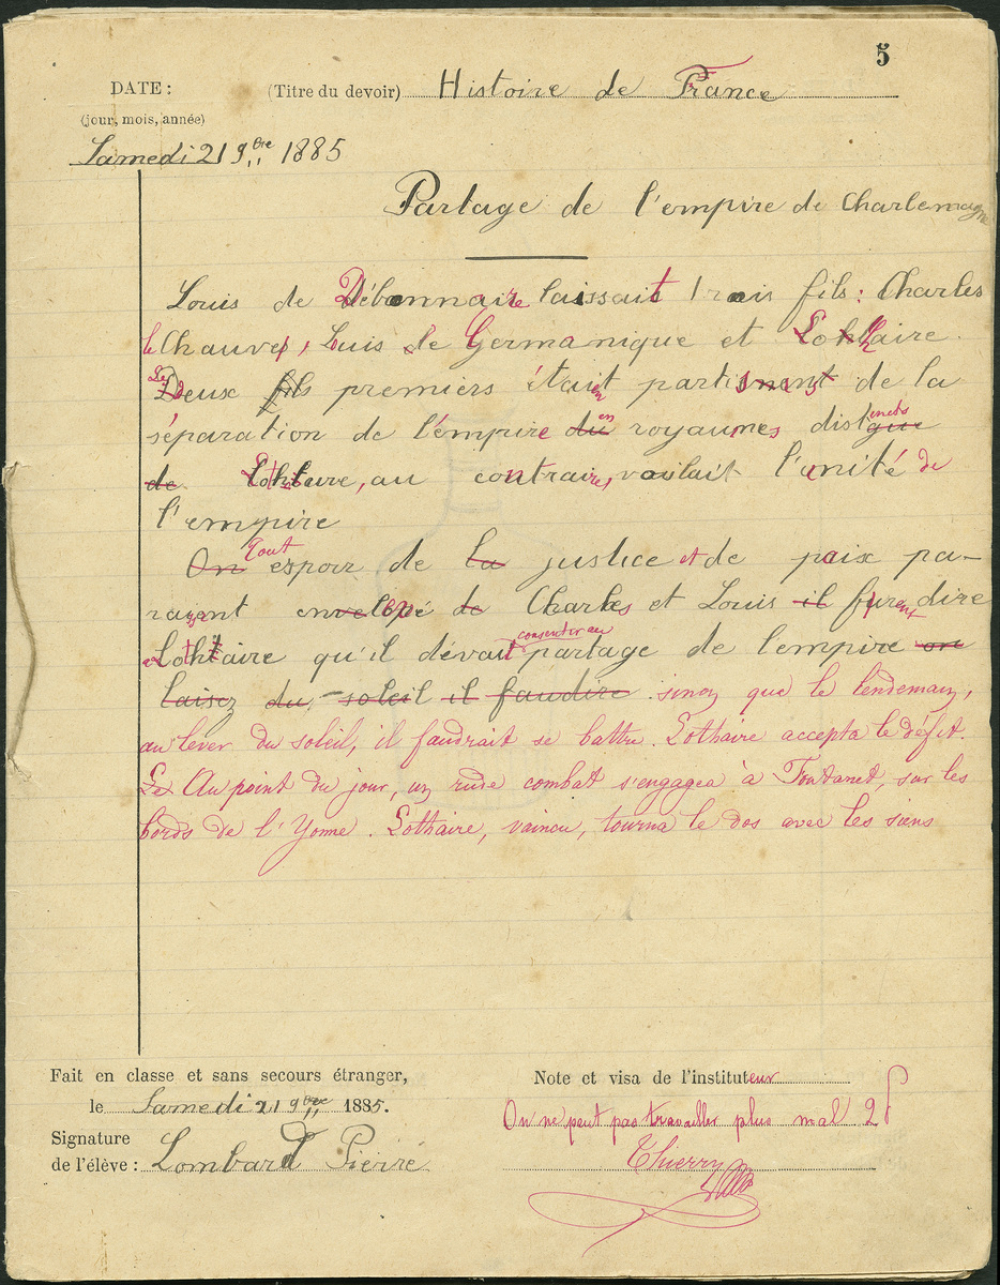 5
DATE : (Titre du devoir) Histoire de France
(jour, mois, année)
Samedi 21 9bre 1885
Partage de l'empire de Charlemagne
Louis de Débonnaire laissait trois fils : Charles
le Chauve, Louis le Germanique et Lothaire.
Les Deux fils premiers étaient partisans de la
séparation de l'empire du en royaumes distincts
de Lothaire, au contraire, voulait l'unité de
l'empire
On Tout espoir de la justice et de paix pa-
raissant envelopé de Charles et Louis il furent dire
à Lothaire qu'il devait consentir au partage de l'empire on
laisez du soleil il faudire sinon que le lendemain,
au lever du soleil, il faudrait se battre. Lothaire accepta le défit.
Le Au point du jour, un rude combat s'engagea à Fontanet, sur les
bords de l'Yonne. Lothaire, vaincu, tourna le dos avec les siens
Fait en classe et sans secours étranger,
le Samedi 21 9bre 1885.
Signature
de l'élève : Lombard Pierre
Note et visa de l'instituteur
On ne peut pas travailler plus mal 2
Thierry